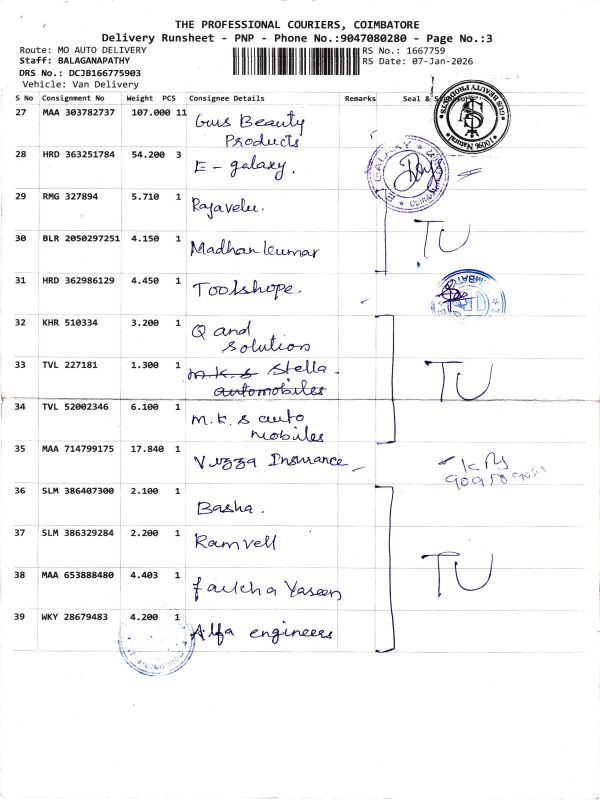 THE PROFESSIONAL COURIERS, COIMBATORE
Delivery Runsheet - PNP - Phone No.:9047080280 - Page No.:3
Route: MO AUTO DELIVERY
RS No.: 1667759
Staff: BALAGANAPATHY
RS Date: 07-Jan-2026
DRS No.: DCJB166775903
Vehicle: Van Delivery
S No Consignment No Weight PCS Consignee Details Remarks Seal &
GUS BEAUTY PRODUCTS
100% Natural
27 MAA 303782737 107.000 11 Gus Beauty
Products
28 HRD 363251784 54.200 3 E - galaxy.
GALAXY
29 RMG 327894 5.710 1 Rajavelu.
TU
30 BLR 2050297251 4.150 1 Madhan kumar
31 HRD 362986129 4.450 1 Toolshope.
32 KHR 510334 3.200 1 Q and
solution
33 TVL 227181 1.300 1 m.k.s stella.
automobiles
TU
34 TVL 52002346 6.100 1 m.k.s auto
mobiles
35 MAA 714799175 17.840 1 Vizza Insurance
36 SLM 386407300 2.100 1 Basha.
37 SLM 386329284 2.200 1 Ramvell
TU
38 MAA 653888480 4.403 1 Yaseen
39 WKY 28679483 4.200 1 Alfa engineers